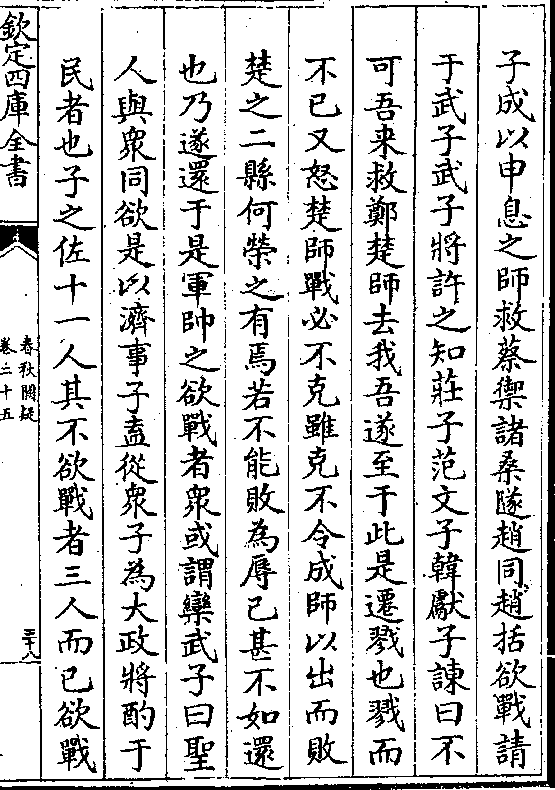 子成以申息之師救蔡禦諸桑隧趙同趙括欲戰請
于武子武子將許之知莊子范文子韓獻子諫曰不
可吾来救鄭楚師去我吾遂至于此是遷戮也戮而
不已又怒楚師戰必不克雖克不令成師以出而敗
楚之二縣何榮之有焉若不能敗為辱已甚不如還
也乃遂還于是軍帥之欲戰者衆或謂欒武子曰聖
人與衆同欲是以濟事子盍從衆子為大政將酌于
民者也子之佐十一人其不欲戰者三人而已欲戰
欽定四庫全書
春秋闕疑
卷二十五
三十八